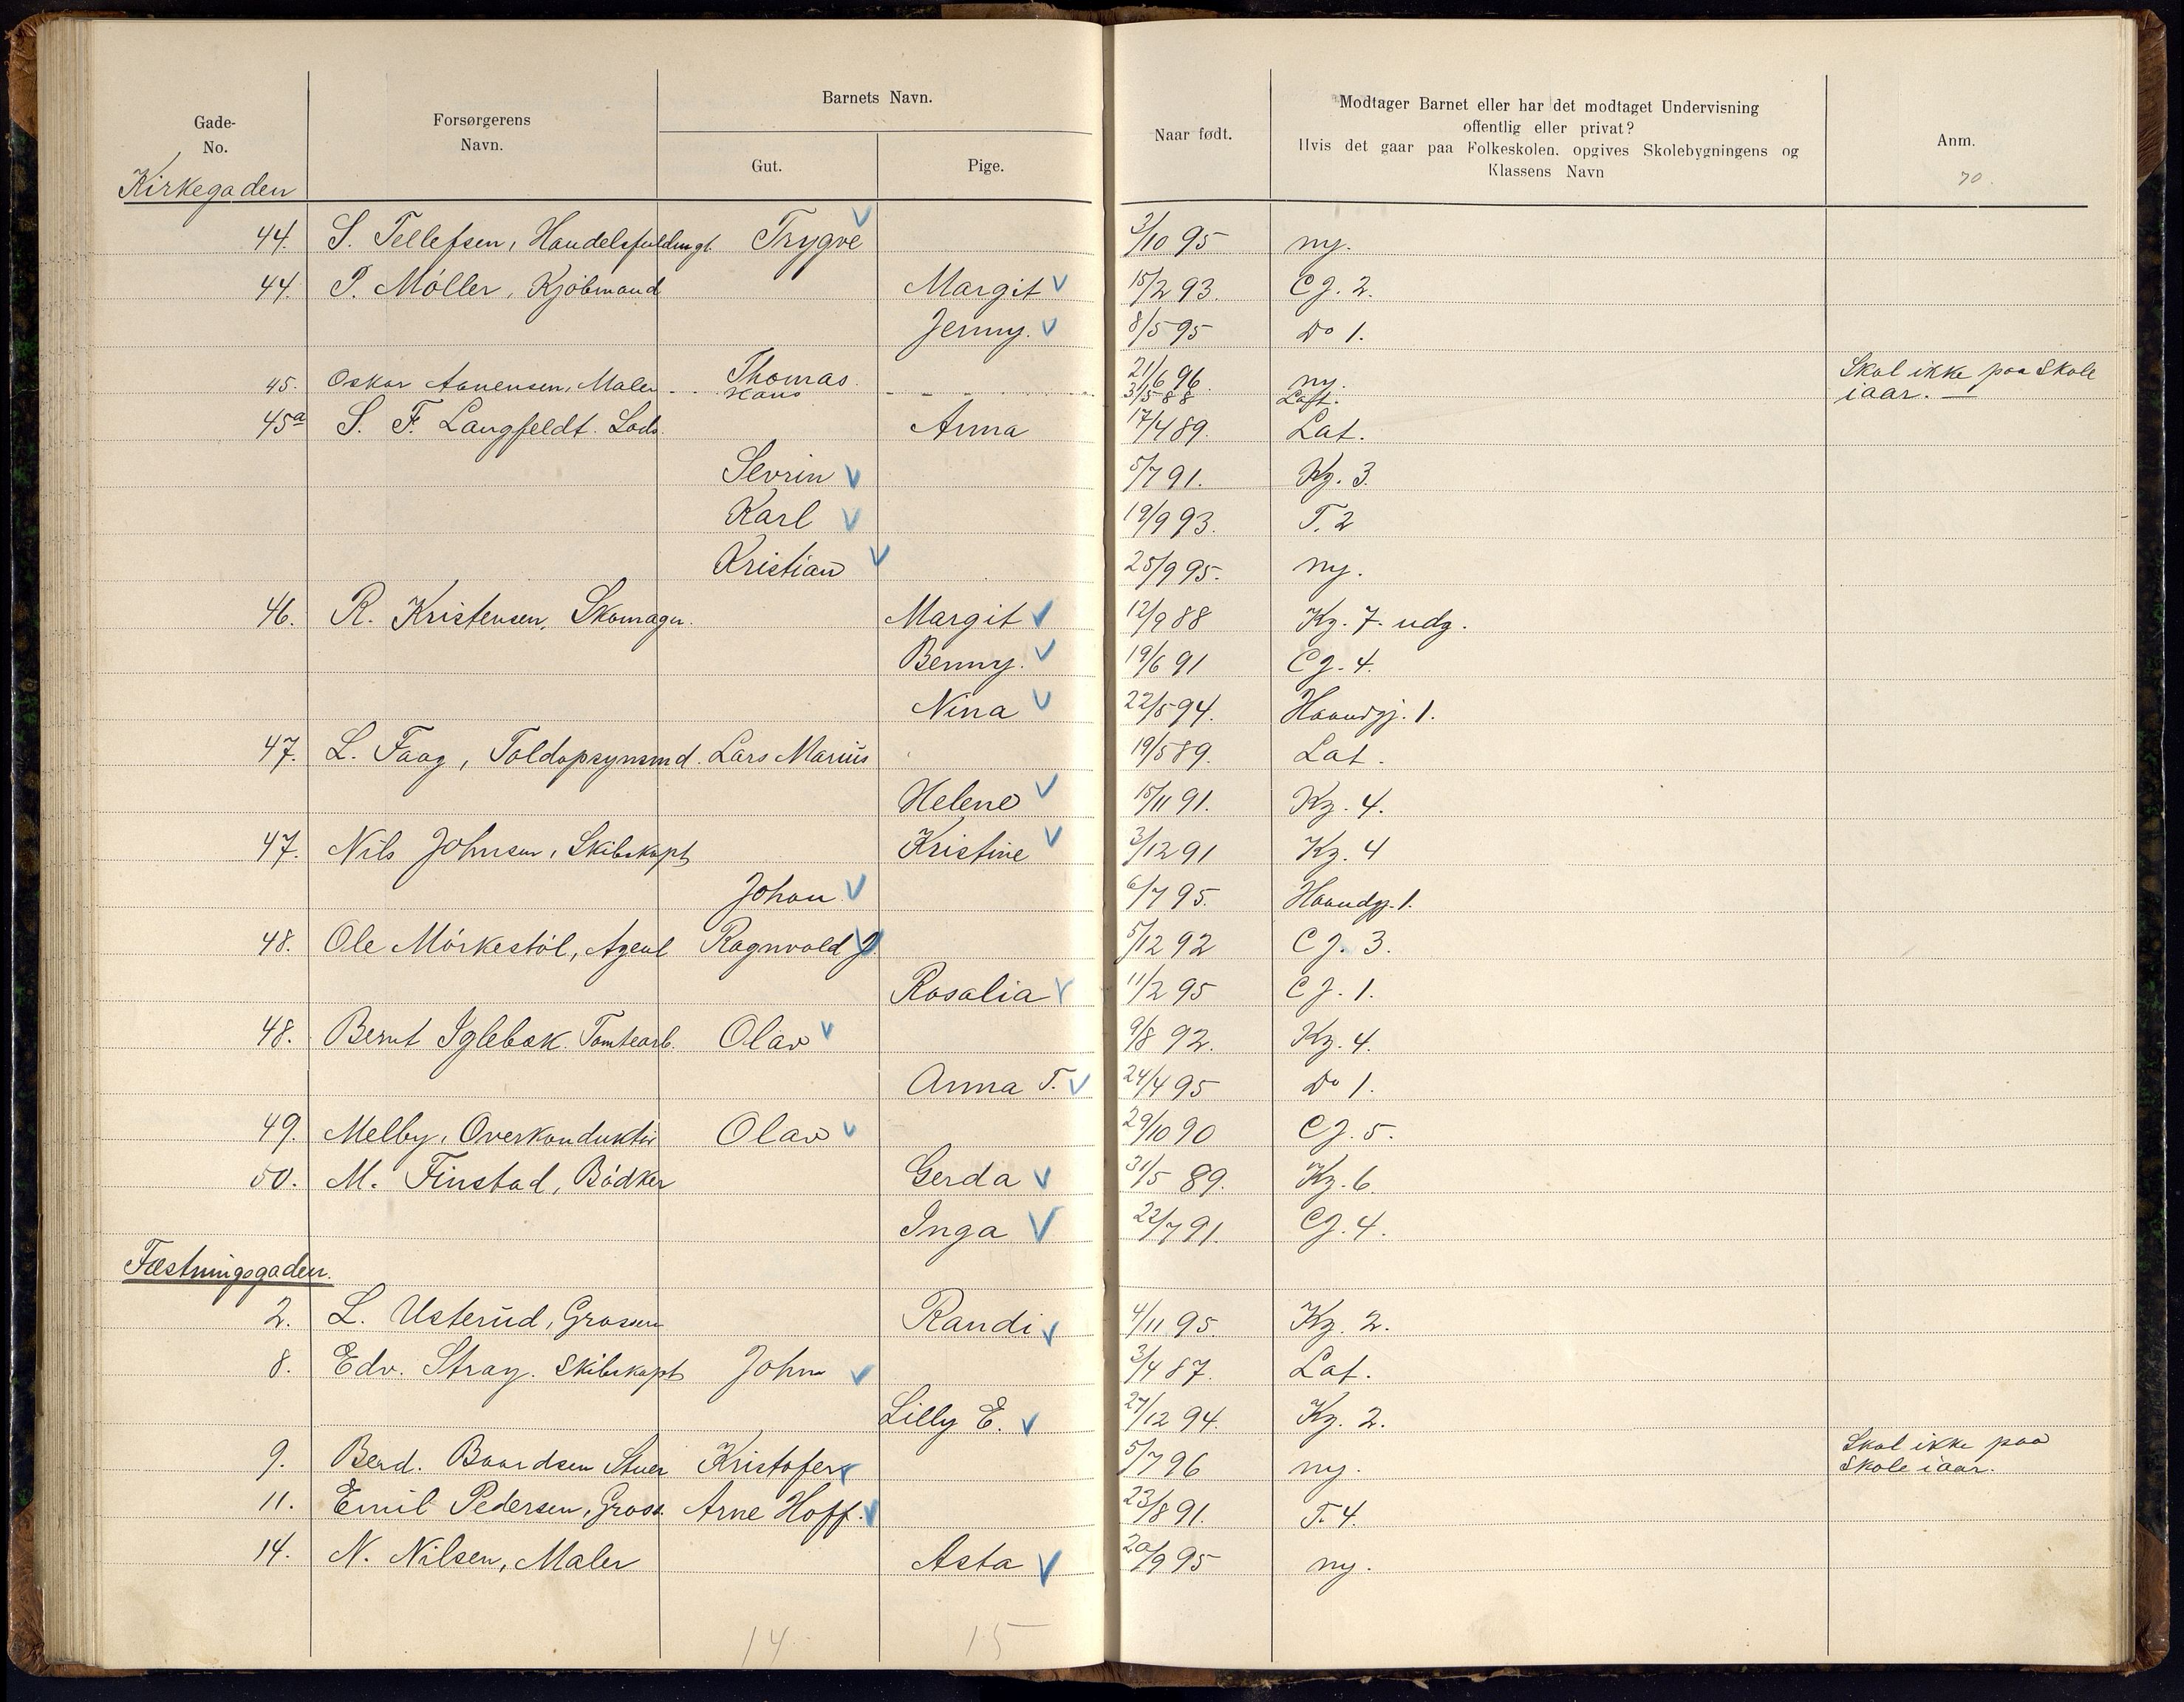 Gade-
No.
Forsørgerens
Navn.
Barnets Navn.
Gut.
Pige.
Naar født.
Modtager Barnet eller har det modtaget Undervisning
offentlig eller privat?
Hvis det gaar paa Folkeskolen. opgives Skolebygningens og
Klassens Navn
Anm.
70.
Kirkegaden
44. S. Tellefsen, Handelsfuldmgt. Trygve 3/10 95 ny.
44. P. Möller, Kjöbmand Margit 15/2 93. Cg. 2.
Jenny. 8/5 95 Do 1.
45. Oskar Aanensen, Maler Thomas. 21/6 96. ny. Skal ikke paa Skole
Hans 31/5 88 Laft. iaar.
45a S. F. Langfeldt. Lods. Anna 17/4 89. Lat.
Sevrin 5/7 91. Kg. 3.
Karl 19/9 93. T. 2
Kristian 25/9 95. ny.
46. R. Kristensen, Skomager. Margit 12/9 88 Kg. 7. udg.
Benny. 19/6 91 Cg. 4.
Nina 22/5 94. Haandgj. 1.
47. L. Faag, Toldopsynsmd. Lars Marius 19/5 89. Lat.
Helene 15/11 91. Kg. 4.
47. Nils Johnsen, Skibskapt Kristine 3/12 91 Kg. 4
Johan 6/7 95. Haandgj. 1.
48. Ole Mörkestöl, Agent Ragnvald J. 5/12 92 Cg. 3.
Rosalia 11/2 95 Cg. 1.
48. Bernt Iglebæk. Tomtearb. Olav 9/8 92. Kg. 4.
Anna T. 24/4 95 Do 1.
49. Melby, Overkonduktör Olav 29/10 90 Cg. 5.
50. M. Finstad, Bödker Gerda 31/5 89. Kg. 6.
Inga 22/7 91. Cg. 4.
Fæstningsgaden.
2. L. Usterud, Grosserer Randi 4/11 95. Kg. 2.
8. Edv. Stray. Skibskapt John 3/4 87. Lat.
Lilly E. 27/12 94. Kg. 2.
9. Berd. Baardsen Stuer Kristofer 5/7 96 ny. Skal ikke paa
Skole iaar.
11. Emil Pedersen, Gross. Arne Hoff. 23/8 91. T. 4.
14. N. Nilsen, Maler Asta 20/9 95 ny.
14 15